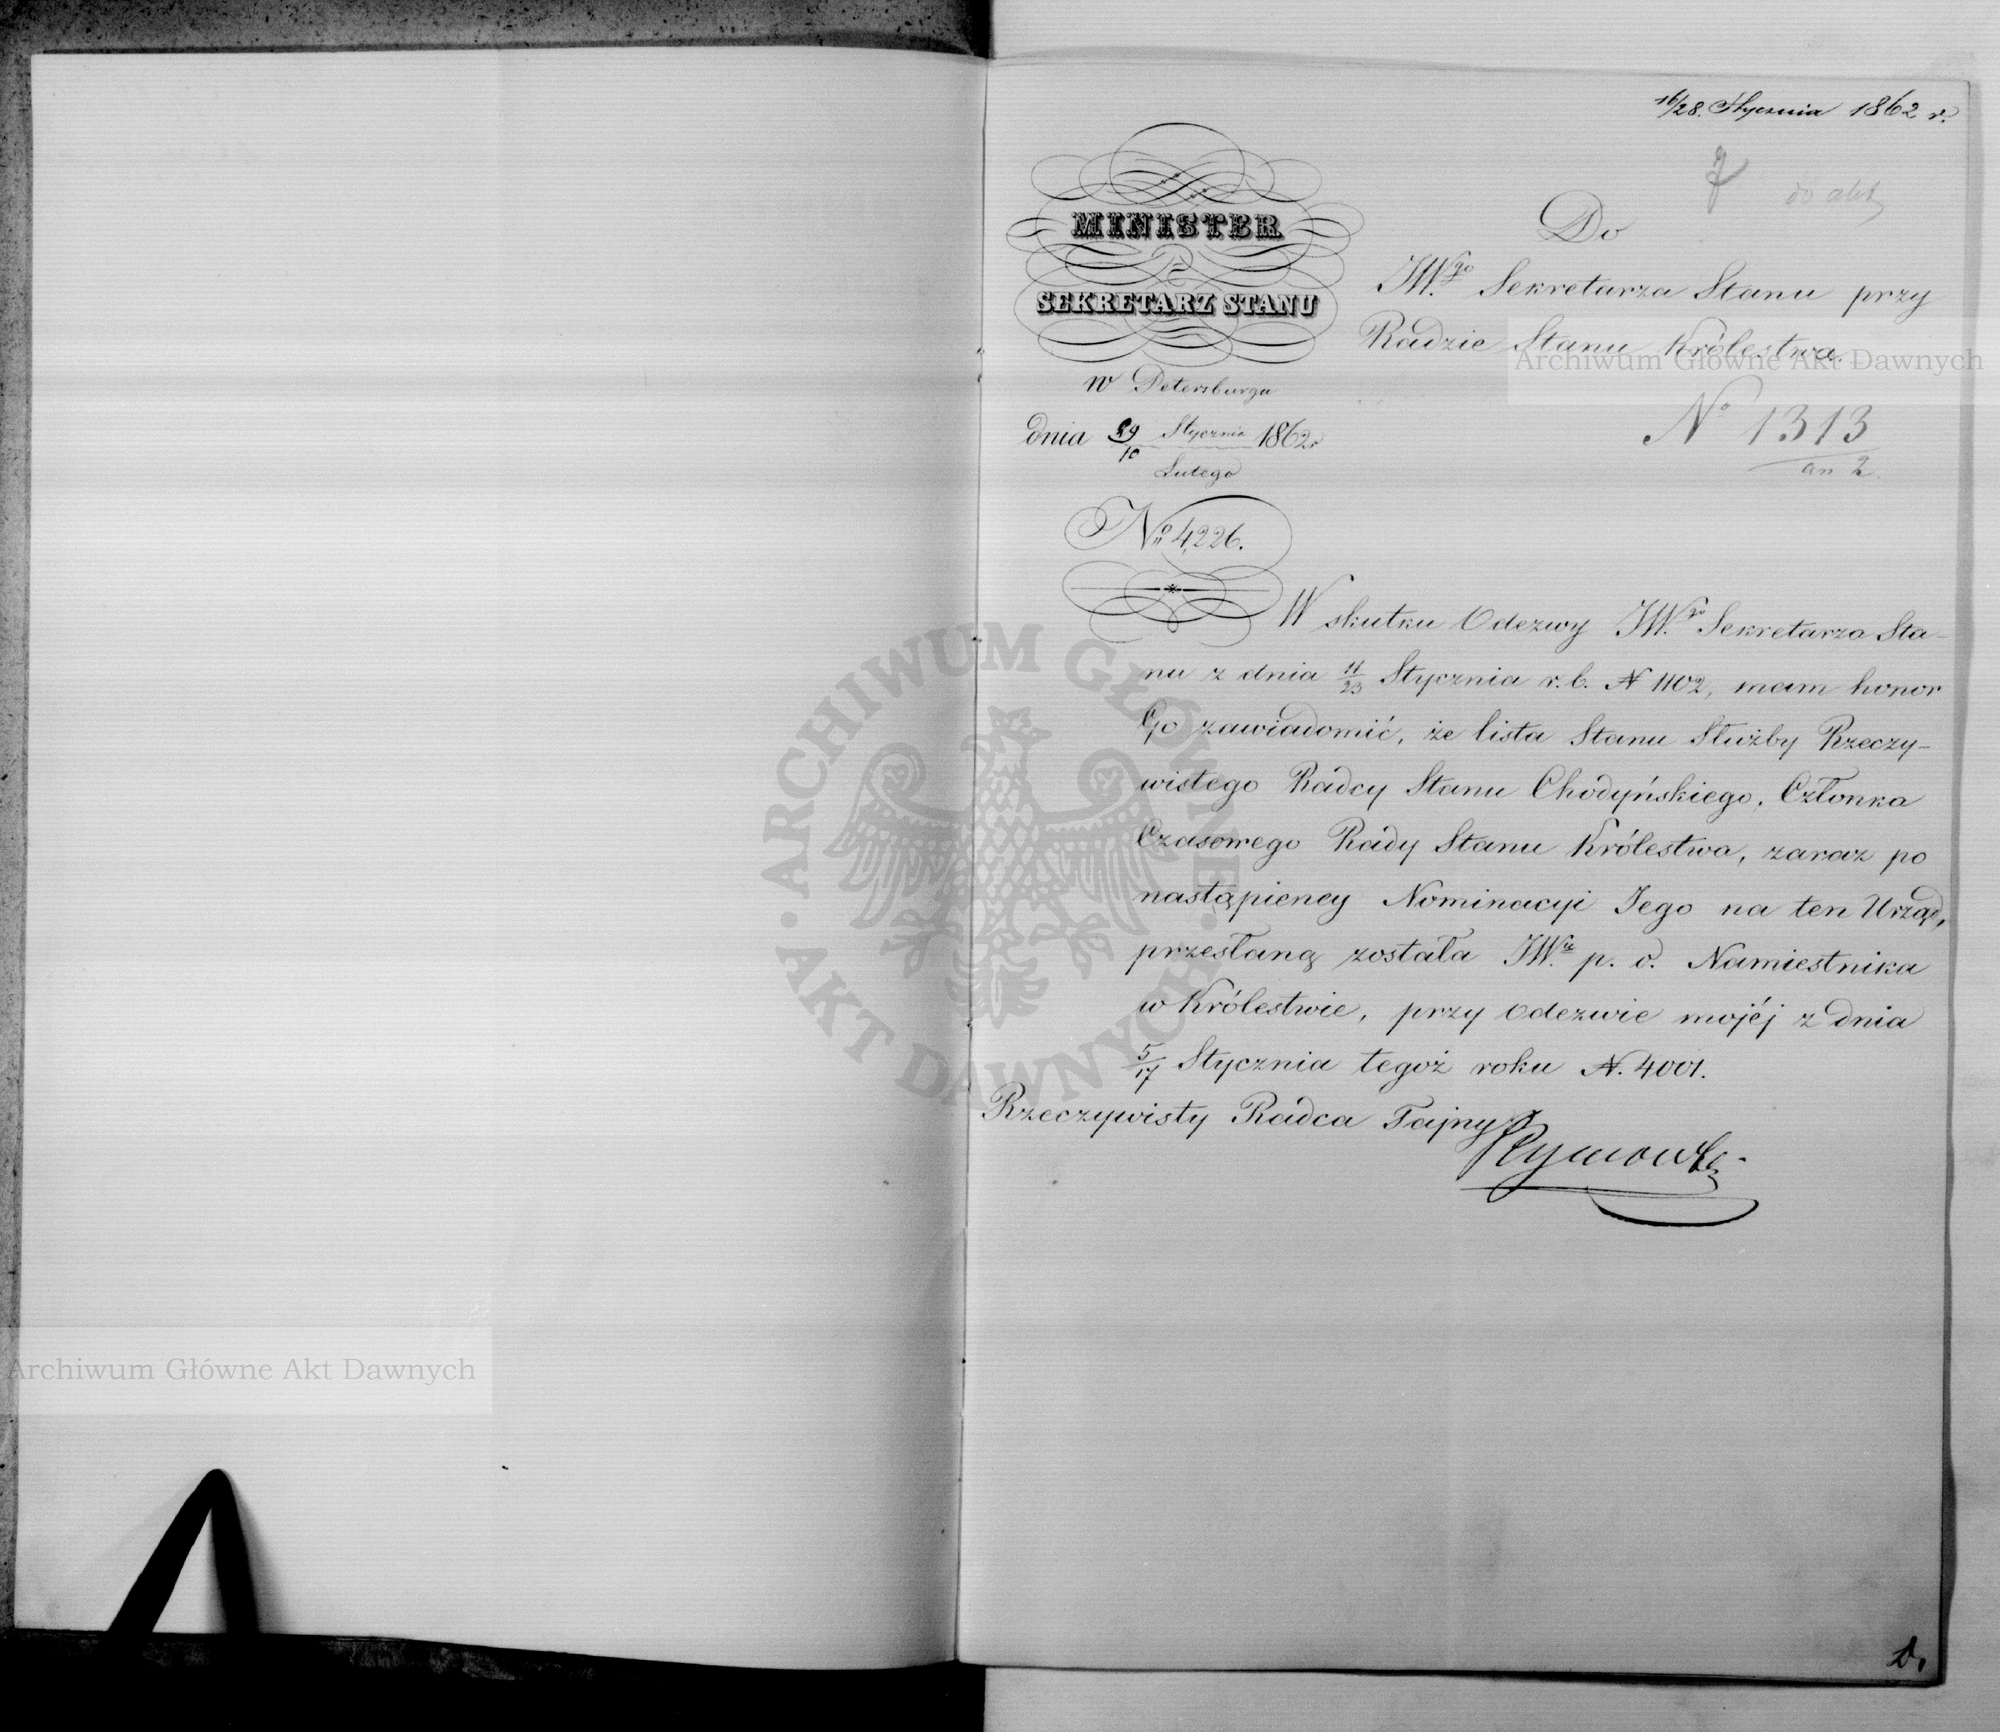 16/28. Stycznia 1862 r.
do akt
MINISTER
SEKRETARZ STANU
w Petersburgu
dnia 29/10 Stycznia 1862 r
Lutego
No 4,226.
Do
JW.go Sekretarza Stanu przy
Radzie Stanu Królestwa.
No 1313
an 2.
W skutku Odezwy JW.go Sekretarza Sta-
nu z dnia 11/23 Stycznia r. b. N 1102, mam honor
Go zawiadomić, że lista Stanu Służby Rzeczy-
wistego Radcy Stanu Chodyńskiego, Członka
Czasowego Rady Stanu Królestwa, zaraz po
nastąpieney Nominacyi Jego na ten Urząd,
przesłaną została JW. p. o. Namiestnika
w Królestwie, przy Odezwie mojéj z dnia
5/17 Stycznia tegoż roku N. 4001.
Rzeczywisty Radca Tajny
Tymowski
Archiwum Główne Akt Dawnych
Archiwum Główne Akt Dawnych
ARCHIWUM GŁÓWNE AKT DAWNYCH